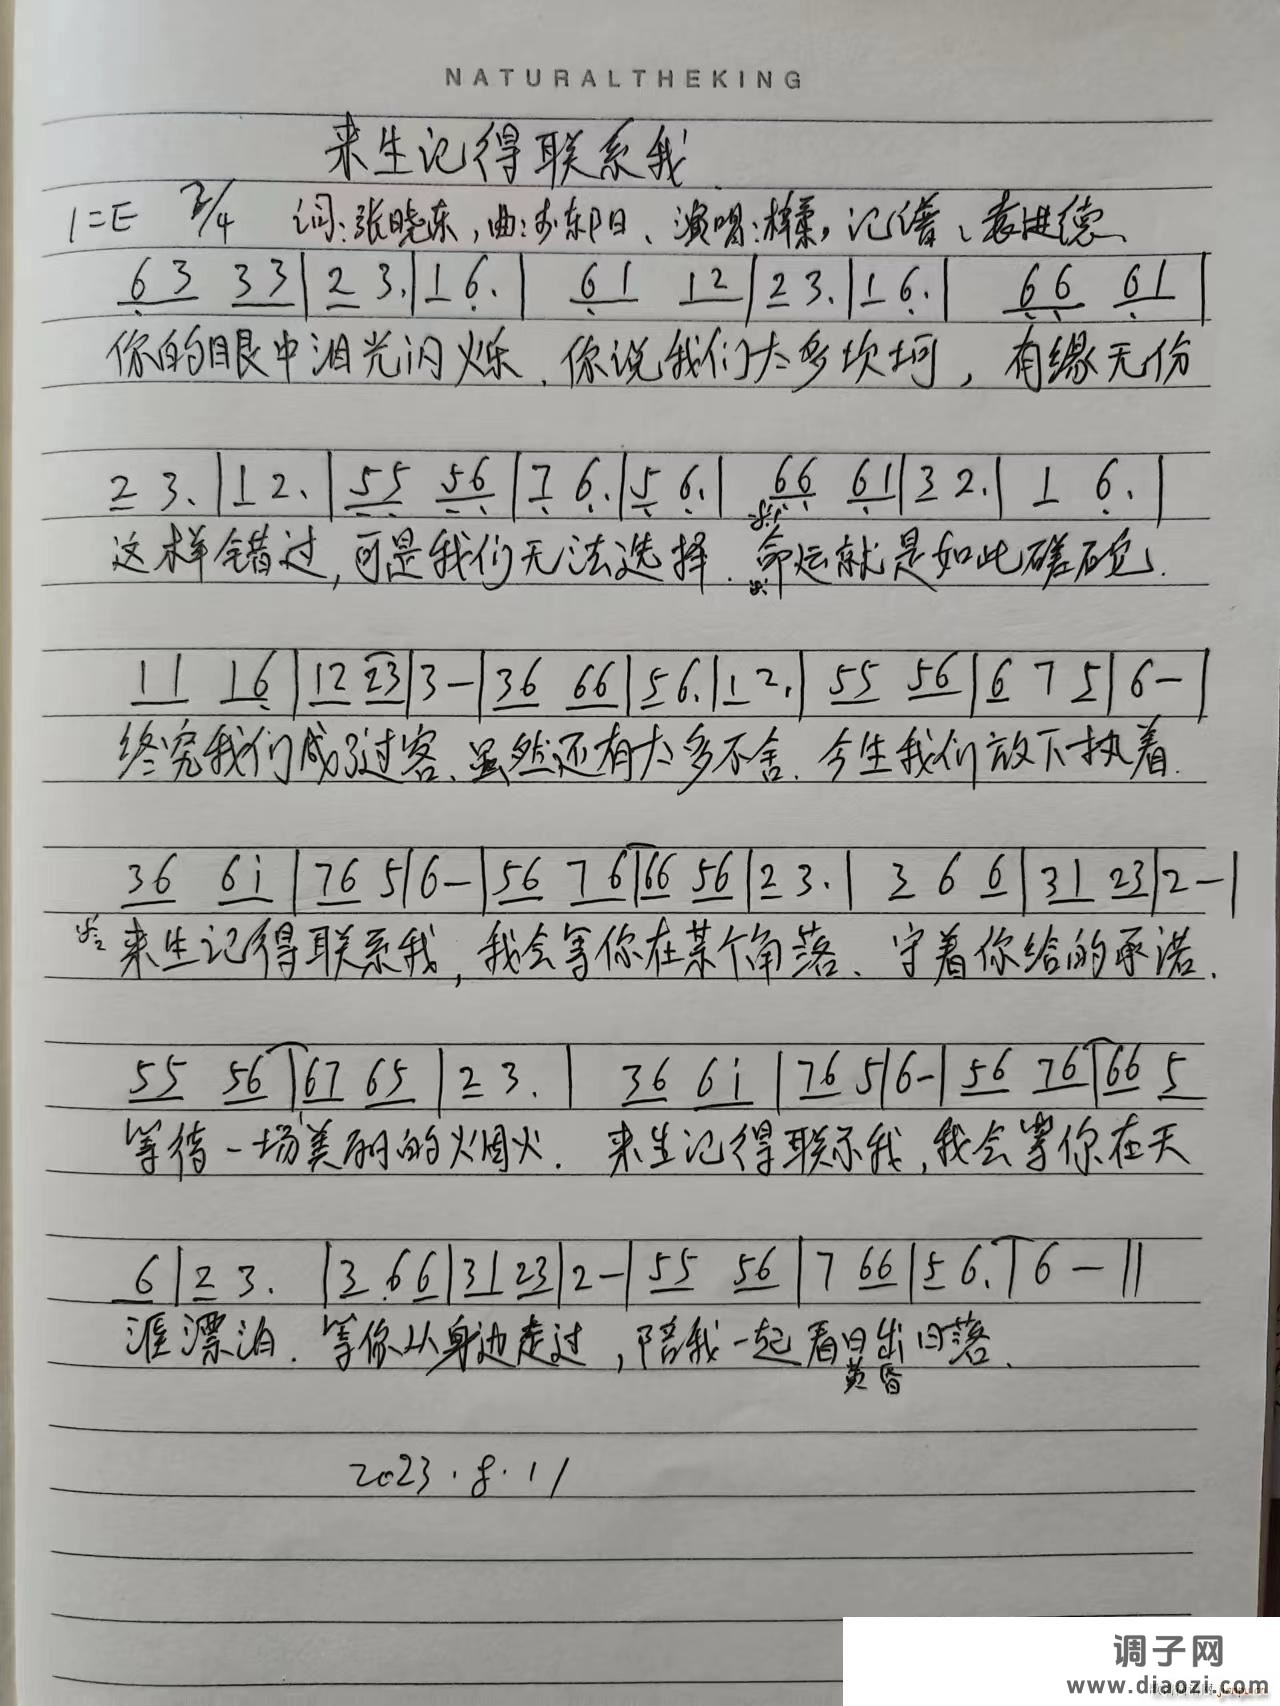 NATURALTHEKING
来生记得联系我
1=E 2/4 词:张晓东,曲: 、演唱: 记谱、袁进德
63 33|2 3.|1 6.| 61 12|2 3.|1 6.| 66 61|
你的眼中泪光闪烁.你说我们太多坎坷,有缘无份
2 3.|1 2.|55 56|7 6.|5 6.| 66 61|3 2.| 1 6.|
这样错过,可是我们无法选择.命运就是如此
11 16|12 23|3-|36 66|5 6.|1 2.| 55 56|6 7 5|6-|
终究我们成了过客、虽然还有太多不舍.今生我们放下执着.
36 6i|76 5|6-|56 76|66 56|2 3.| 3 6 6|31 23|2-|
来生记得联系我,我会等你在某个角落、守着你给的承诺.
55 56|67 65|2 3.| 36 6i|76 5|6-|56 76|66 5
等待一场美丽的烟火.来生记得联系我,我会等你在天
6|2 3. |3.66|31 23|2-|55 56|7 66|5 6.|6-||
涯漂泊.等你从身边走过,陪我一起看日出日落.
黄昏
2023.8.11
调子网
www.diaozi.com